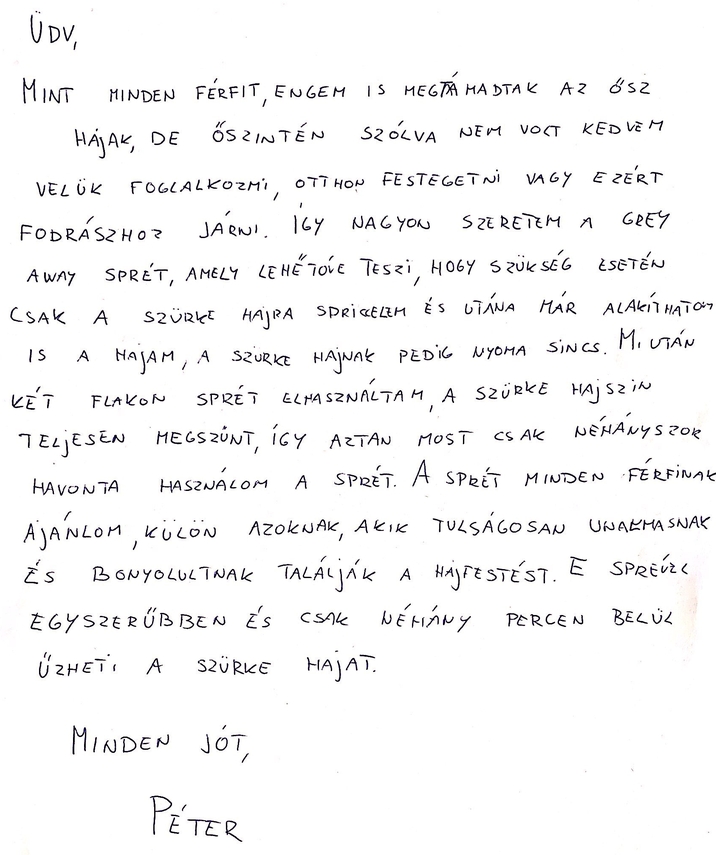 ÜDV,
MINT MINDEN FÉRFIT, ENGEM IS MEGTÁMADTAK AZ ŐSZ
HAJAK, DE ŐSZINTÉN SZÓLVA NEM VOLT KEDVEM
VELÜK FOGLALKOZNI, OTTHON FESTEGETNI VAGY EZÉRT
FODRÁSZHOZ JÁRNI. ÍGY NAGYON SZERETEM A GREY
AWAY SPRÉT, AMELY LEHETŐVE TESZI, HOGY SZÜKSÉG ESETÉN
CSAK A SZÜRKE HAJRA SPRICCELEM ÉS UTÁNA MÁR ALAKÍTHATOM
IS A HAJAM, A SZÜRKE HAJNAK PEDIG NYOMA SINCS. MIUTÁN
KÉT FLAKON SPRÉT ELHASZNÁLTAM, A SZÜRKE HAJSZIN
TELJESEN MEGSZŰNT, ÍGY AZTÁN MOST CSAK NÉHÁNYSZOR
HAVONTA HASZNÁLOM A SPRÉT. A SPRÉT MINDEN FÉRFINAK
AJÁNLOM, KÜLÖN AZOKNAK, AKIK TULSÁGOSAN UNALMASNAK
ÉS BONYOLULTNAK TALÁLJÁK A HAJFESTÉST. E SPRÉVEL
EGYSZERŰBBEN ÉS CSAK NÉHÁNY PERCEN BELÜL
ŰZHETI A SZÜRKE HAJAT.
MINDEN JÓT,
PÉTER